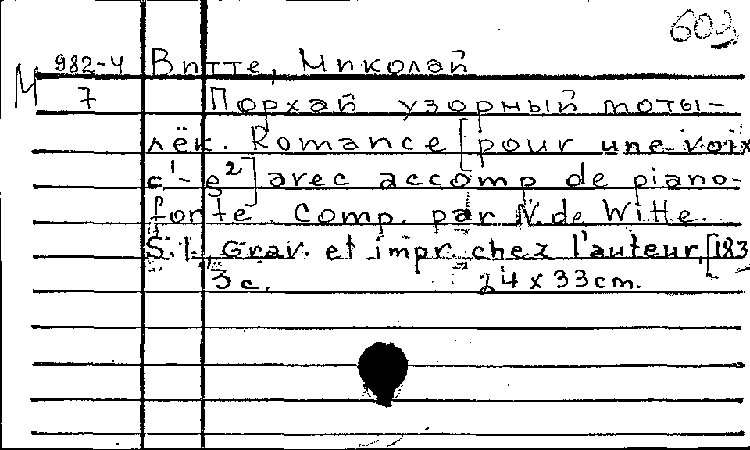 603
М 982-4 Витте, Миколай
7 Порхай узорный моты-
лёк. Romance [pour une voix
c¹-g²] avec accomp de piano-
forte. Comp. par N. de Witte.
S.l., Grav. et impr. chez l'auteur, [183
3 с. 24 x 33 cm.